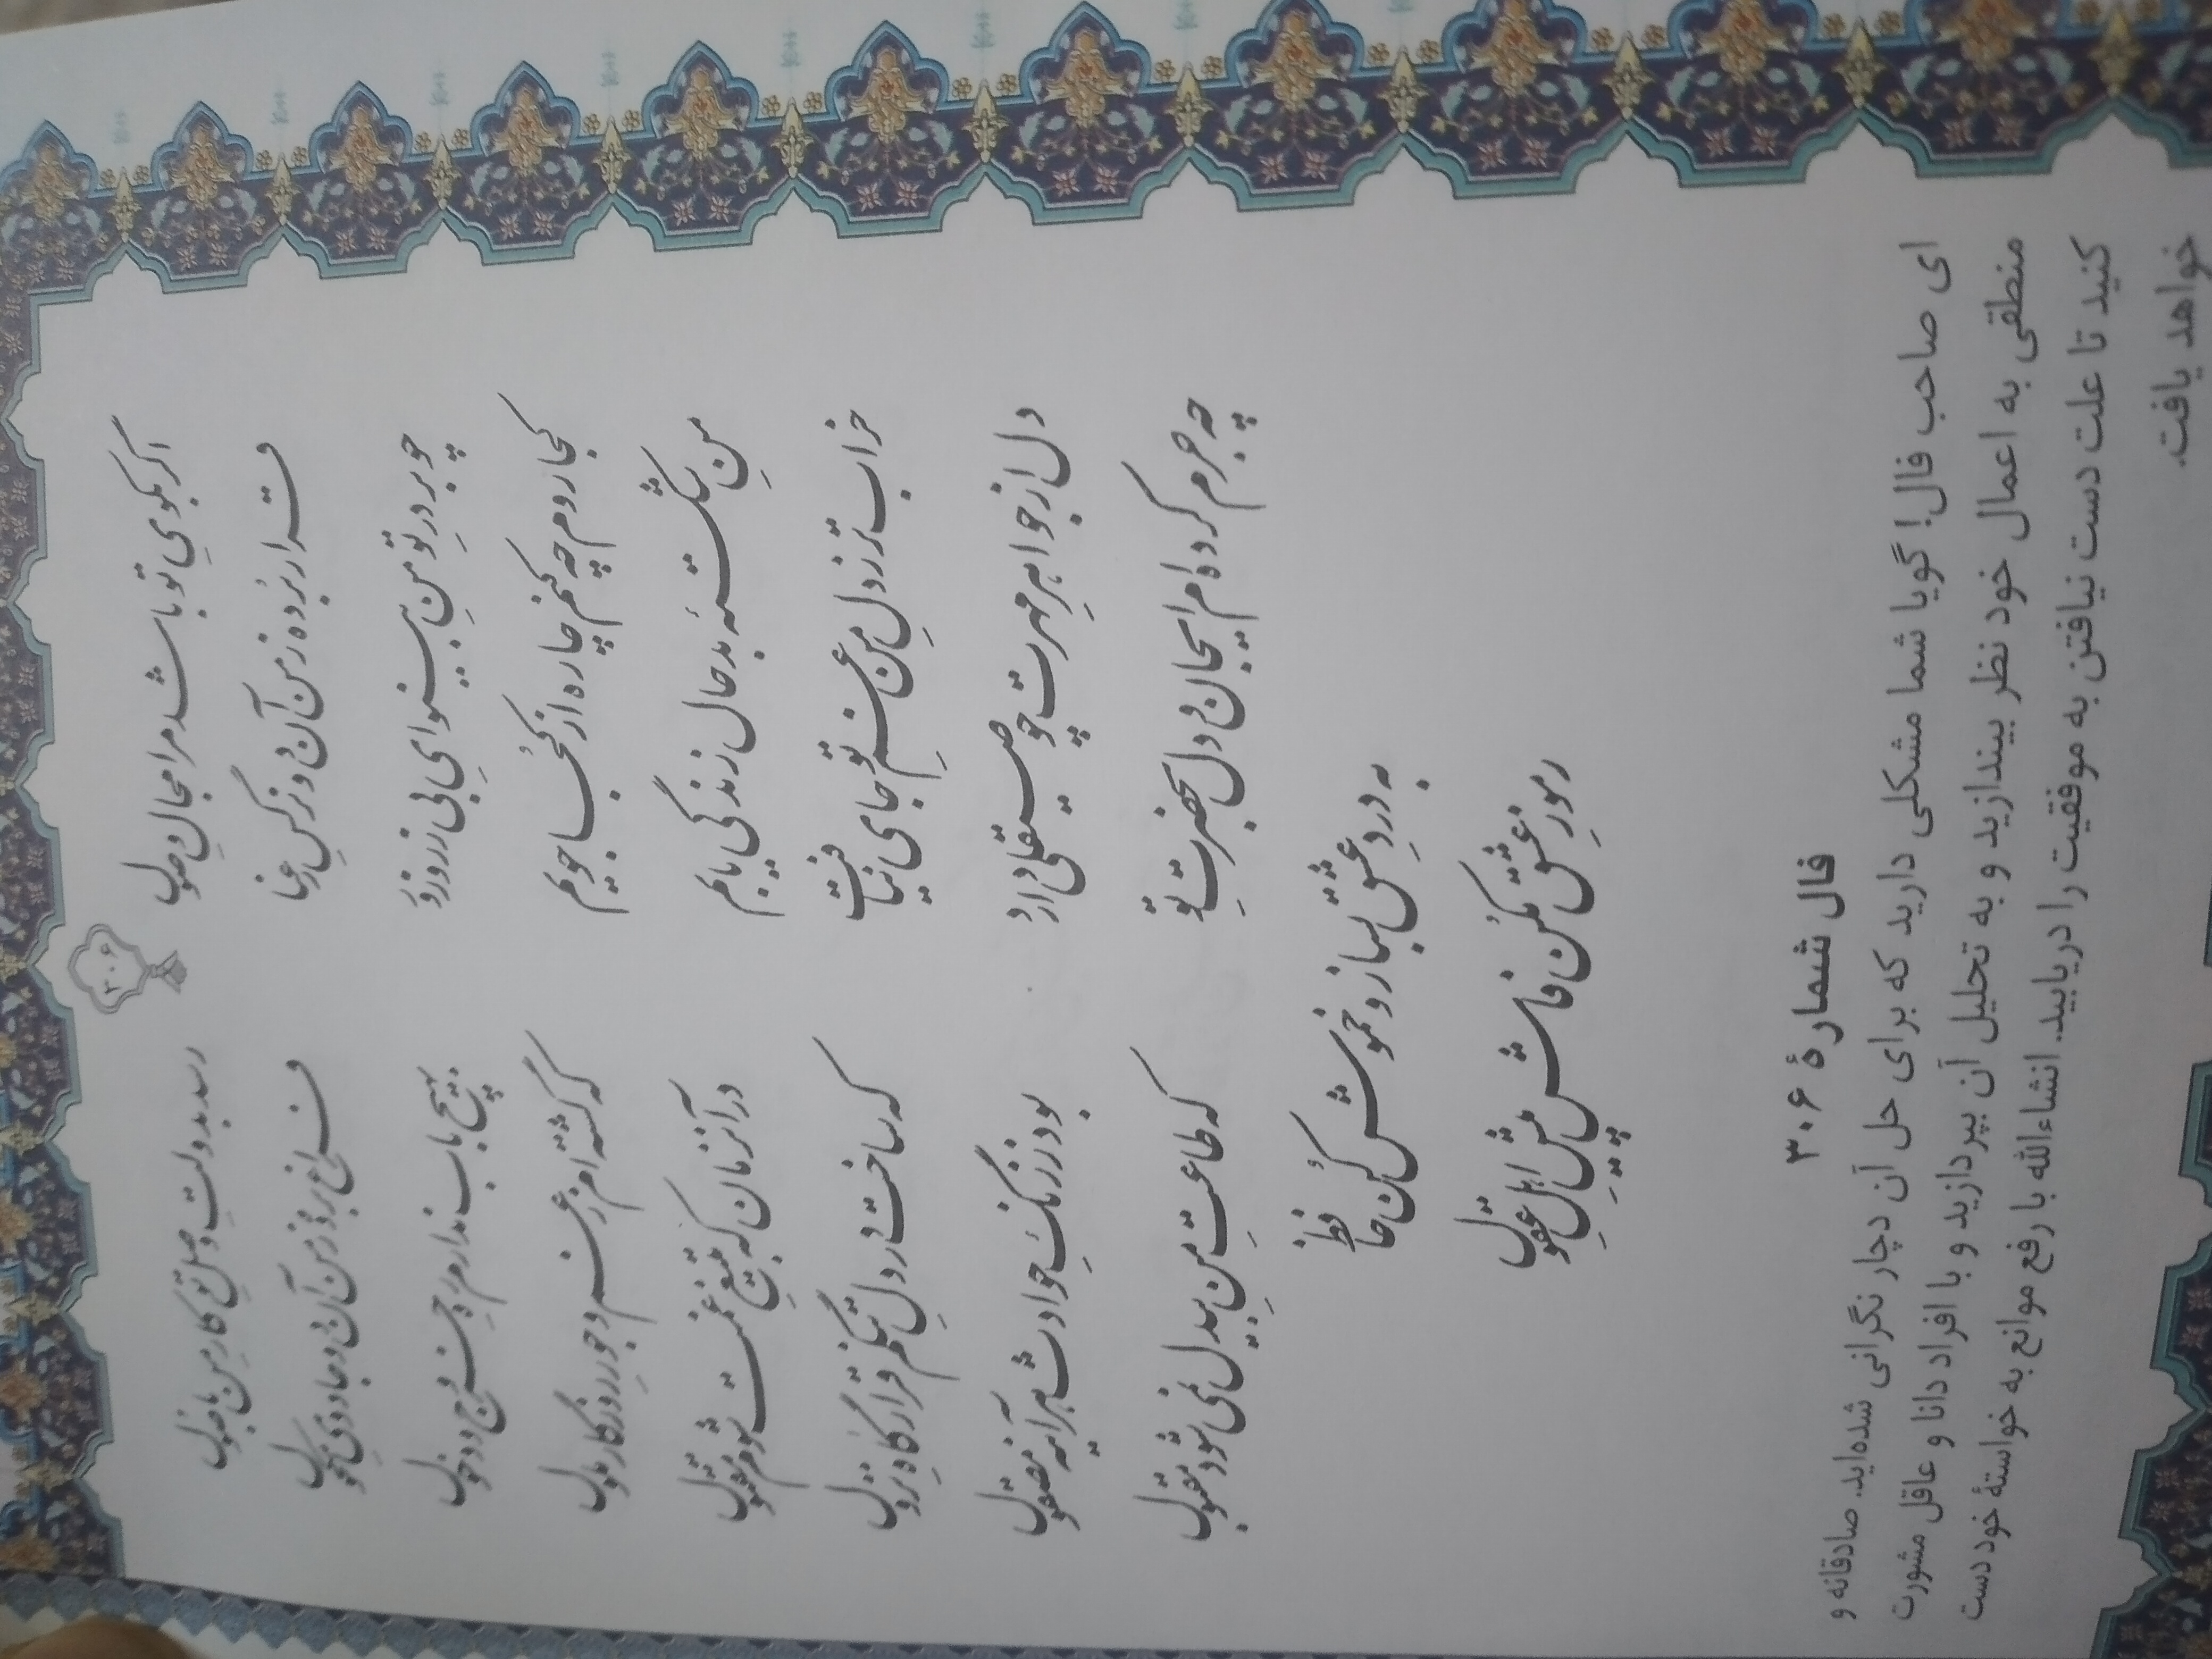 ۳۰۶
اگر بکویِ تو باشد مرا مجالِ وصول رسد بدولتِ وصلِ تو کارِ من باصول
قرار بُرده ز من آن دو نرگسِ رعنا فراغ برده ز من آن دو جادویِ مکحول
چو بر درِ تو منِ بینوایِ بی زر و زور بهیچ باب ندارم رهِ خروج و دخول
کجا روم چه کنم چاره از کجا جویم که گشته‌ام ز غم و جورِ روزگار ملول
منِ شکستهٔ بدحال زندگی یابم در آنزمان که به تیغِ غمت شوم مقتول
خراب‌تر ز دلِ من غمِ تو جای نیافت که ساخت در دلِ تنگم قرارگاهِ نزول
دل از جواهرِ مهرت چو صیقلی دارد بود ز زنگِ حوادث هرآینه مصقول
چه جرم کرده‌ام ایجان و دل بحضرتِ تو که طاعتِ منِ بیدل نمی‌شود مقبول
به دردِ عشق بساز و خموش کُن حافظ
رموزِ عشق مکُن فاش پیشِ اهلِ عقول
فال شمارهٔ ۳۰۶
ای صاحب فال! گویا شما مشکلی دارید که برای حل آن دچار نگرانی شده‌اید. صادقانه و
منطقی به اعمال خود نظر بیندازید و به تحلیل آن بپردازید و با افراد دانا و عاقل مشورت
کنید تا علت دست نیافتن به موفقیت را دریابید. انشاءالله با رفع موانع به خواستهٔ خود دست
خواهد یافت.